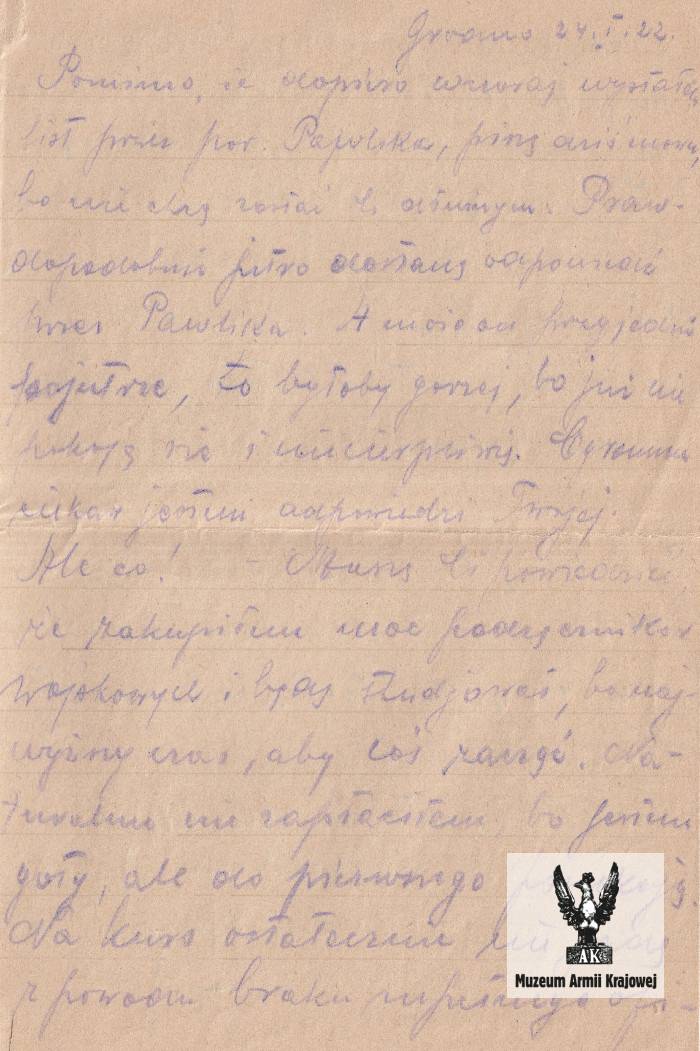 Grodno 24.I.22.
Pomimo, że dopiero wczoraj wysłałem
list przez por. Pawlika, piszę dziś znowu,
bo nie chcę zostać Ci dłużnym. Praw-
dopodobnie jutro dostanę odpowiedź
przez Pawlika. A może on przyjedzie
pojutrze, to byłoby gorzej, bo już nie
pokoję się i niecierpliwię. Ogromnie
ciekaw jestem odpowiedzi Twojej.
Ale co! - Muszę Ci powiedzieć
że zakupiłem moc podręczników
wojskowych i będę studjował, bo naj-
wyższy czas, aby coś zacząć. Na-
turalnie nie zapłaciłem, bo jestem
goły, ale do pierwszego
Na kurs ostatecznie nie
z powodu braku zupełnego
AK
Muzeum Armii Krajowej